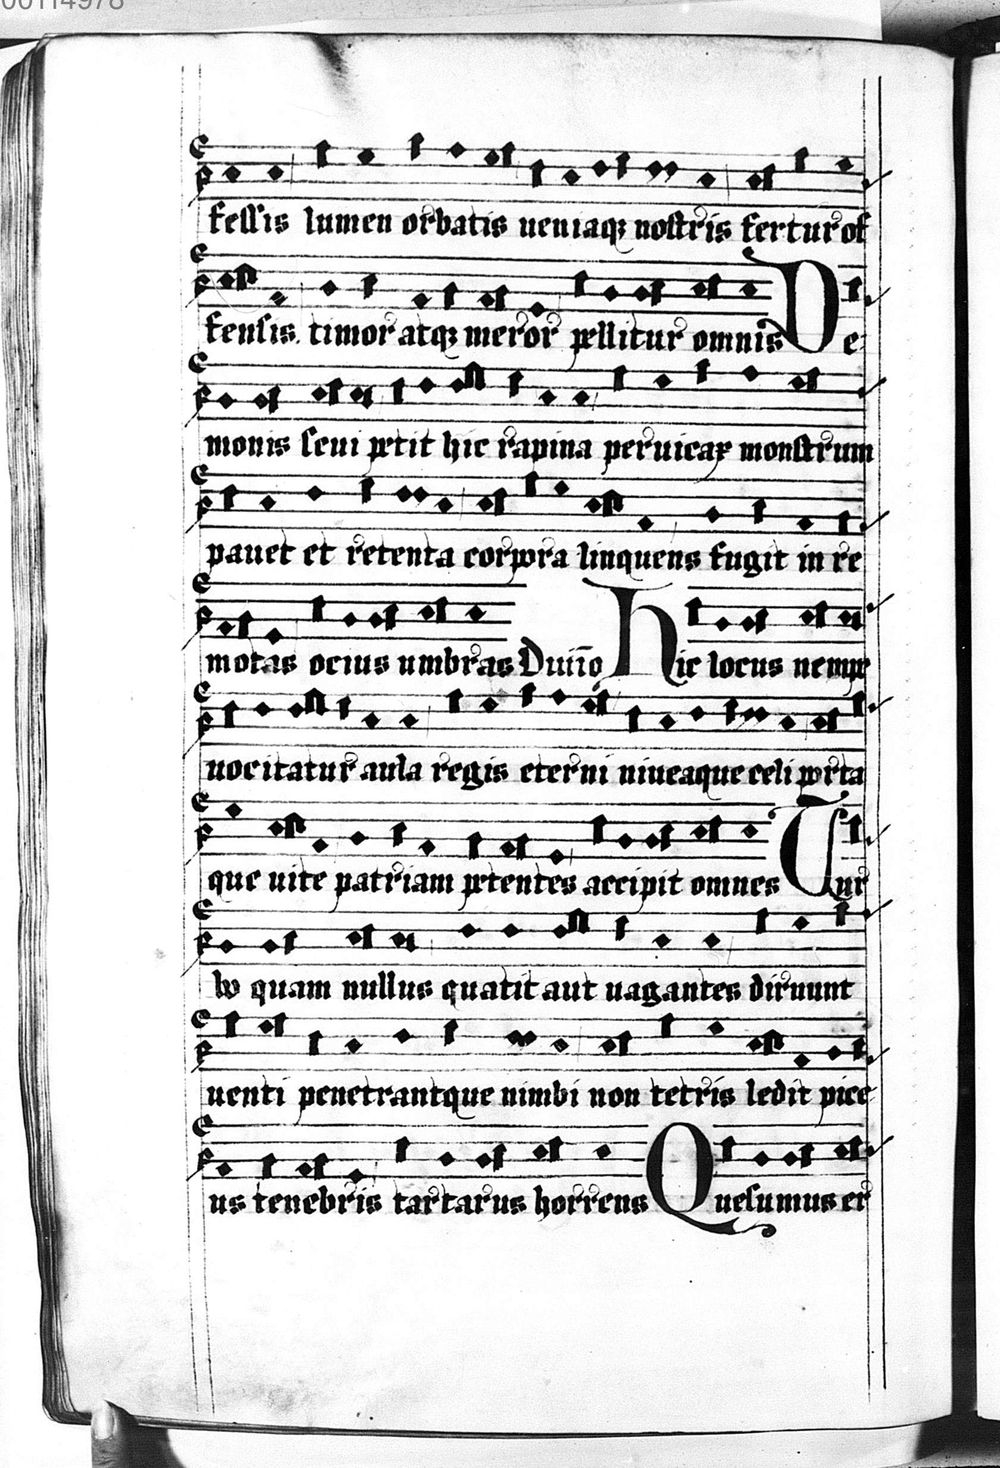 00114978
fessis lumen orbatis ueniaqꝫ nostris fertur of
fensis. timor atqꝫ meror pellitur omnis De
monis seui petit hic rapina peruicax monstrum
pauet et retenta corpora linquens fugit in re
motas ocius umbras Hic locus nempe
uocitatur aula regis eterni niueaque celi porta
que uite patriam petentes accipit omnes Tur
bo quam nullus quatit aut uagantes diruunt
uenti penetrantque nimbi non tetris ledit pice
us tenebris tartarus horrens Quesumus er